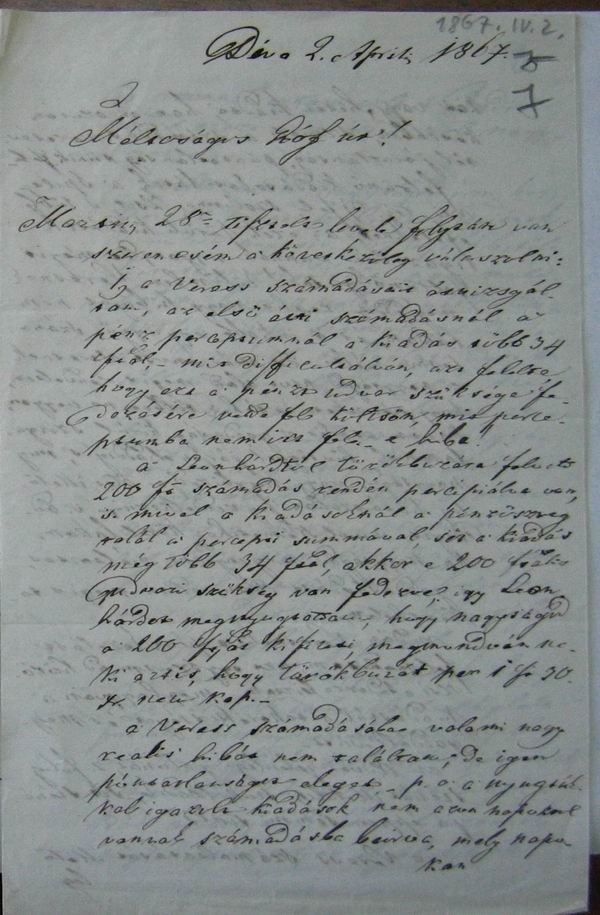 1867. IV. 2.
Déva 2. April, 1867.
7
Méltoságos Gróf úr!
28 tisztelt levele folytán van
szerencsém a következöleg válaszolni:
a Veress számadásait átvizsgál-
tam, az elsö évi számadásnál a
pénz perceptumnál a kiadás több 34
hogy ezt a pénzt udvar szüksége fe-
dozésére vette fel költsön, mit perce-
ptumba nem irt fel – e hiba.
a Leonhárdtol törökbuzára felvett
200 f számadás rendén percipiálva van,
s mivel a kiadásoknál a pénzöszveg
talál a percepti summával, söt a kiadás
még több 34 akkor e 200
udvari szükség van fedezve, igy Leon-
hárdot megnyugtattam, hogy nagyságod
a 200 kifizeti, megmondván ne-
ki azt is, hogy törökbuzát per 1 f 30.
x. nem kap. –
a Veress számadásába valami nagy
realis hibát nem találtam, de igen
pontatlanságot eleget – p. o. a nyugták-
kal igazolt kiadások nem azon napokrol
vannak számadásba beirva, mely napo-
kon